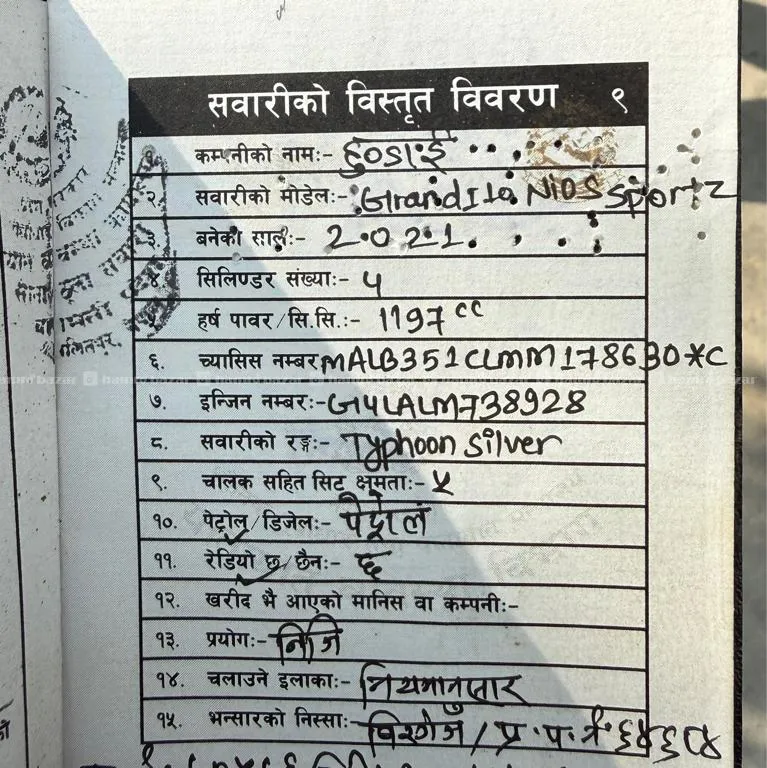 सवारीको विस्तृत विवरण ९
कम्पनीको नाम:- हुण्डाई
२. सवारीको मोडेल:- Grand I10 NiOS Sportz
३. बनेको साल:- 2021.
४. सिलिण्डर संख्या:- ४
५. हर्ष पावर/सि.सि.:- 1197 cc
६. च्यासिस नम्बर MALB351CLMM178630*C
७. इन्जिन नम्बर:- G4LALM738928
८. सवारीको रङ्ग:- Typhoon Silver
९. चालक सहित सिट क्षमता:- ५
१०. पेट्रोल/डिजेल:- पेट्रोल
११. रेडियो छ/छैन:- छ
१२. खरीद भै आएको मानिस वा कम्पनी:-
१३. प्रयोग:- निजि
१४. चलाउने इलाका:- नियमानुसार
१५. भन्सारको निस्सा:- विरगंज / प्र.प.नं.
hamrobazar